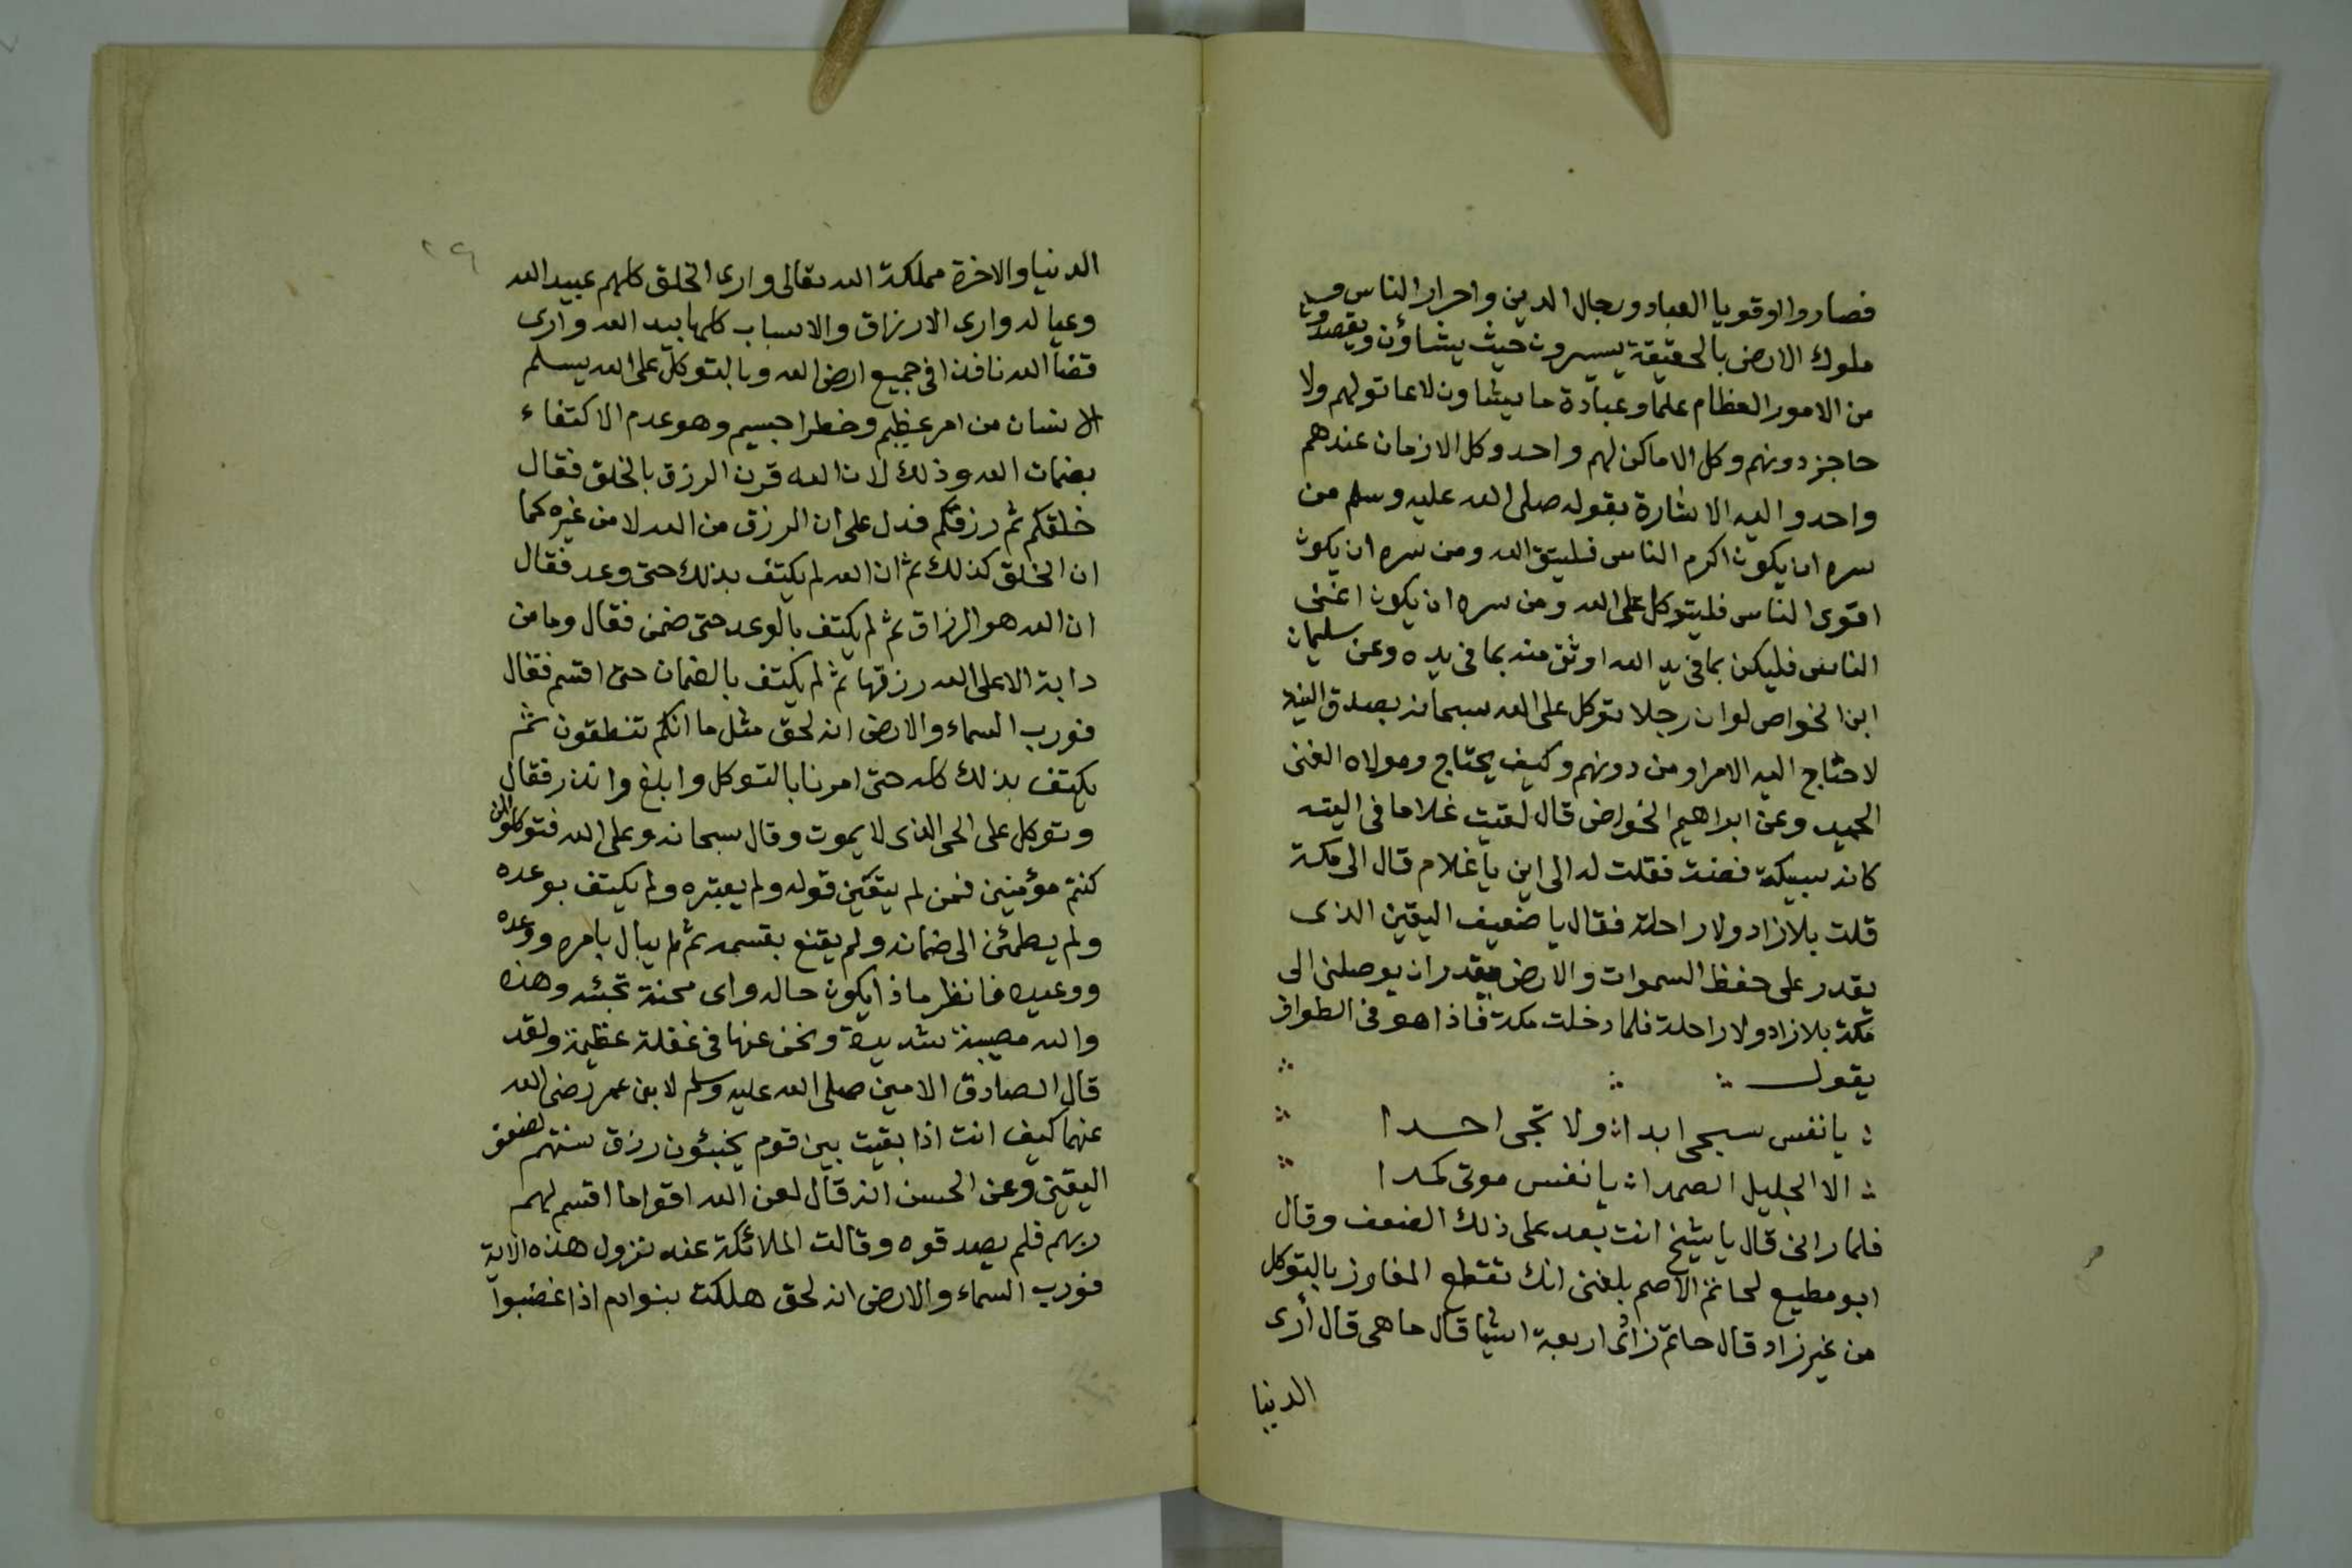 فصاروا وقويا العباد ورجال الدين واحرار الناس و
ملوك الارض بالحقيقة يسيرون حيث يشاؤن ويقصدون
من الامور العظام علما وعبادة ما يشاون لا عاتق لهم ولا
حاجز دونهم وكل الاماكن لهم واحد وكل الازمان عندهم
واحد واليه الاشارة بقوله صلى الله عليه وسلم من
سره ان يكون اكرم الناس فليتق الله ومن سره ان يكون
اقوى الناس فليتوكل على الله ومن سره ان يكون اغنى
الناس فليكن بما فى يد الله اوثق منه بما فى يده وعن سليمان
ابن الخواص لو ان رجلا توكل على الله سبحانه بصدق النية
لاحتاج اليه الامرا ومن دونهم وكيف يحتاج ومولاه الغنى
الحميد وعن ابراهيم الخواص قال لقيت غلاما فى اليته
كانه سبيكة فضة فقلت له الى اين يا غلام قال الى مكة
قلت بلا زاد ولا راحلة فقال يا ضعيف اليقين الذى
يقدر على حفظ السموات والارض يقدر ان يوصلنى الى
مكة بلا زاد ولا راحلة فلما دخلت مكة فاذا هو فى الطواف
يقول
يا نفس سيحى ابدا ولا تحبى احدا
الا الجليل الصمدا يا نفس موتى كمدا
فلما رانى قال يا شيخ انت بعد على ذلك الضعف وقال
ابو مطيع لحاتم الاصم بلغنى انك تقطع المفاوز بالتوكل
من غير زاد قال حاتم زادى اربعة اشيا قال ما هى قال أرى
الدنيا
٢٩
الدنيا والاخرة مملكة الله تعالى وارى الخلق كلهم عبيد الله
وعياله وارى الارزاق والاسباب كلها بيد الله وارى
قضآ الله نافذا فى جميع ارض الله وبالتوكل على الله يسلم
الانسان من امر عظيم وخطر جسيم وهو عدم الاكتفاء
بضمان الله وذلك لان الله قرن الرزق بالخلق فقال
خلقكم ثم رزقكم فدل على ان الرزق من الله لا من غيره كما
ان الخلق كذلك ثم ان الله لم يكتف بذلك حتى وعد فقال
ان الله هو الرزاق ثم لم يكتف بالوعد حتى ضمن فقال وما من
دابة الا على الله رزقها ثم لم يكتف بالضمان حتى اقسم فقال
فورب السماء والارض انه لحق مثل ما انكم تنطقون ثم
يكتف بذلك كله حتى امرنا بالتوكل وابلغ وانذر فقال
وتوكل على الحى الذى لا يموت وقال سبحانه وعلى الله فتوكلوا ان
كنتم مؤمنين فمن لم يتقين قوله ولم يعتبره ولم يكتف بوعده
ولم يطمئن الى ضمانه ولم يقنع بقسمه ثم لم يبال بامره ووعده
ووعيده فانظر ماذا يكون حاله واى محنة تجئه وهذه
والله مصيبة شديدة ونحن عنها فى غفلة عظيمة ولقد
قال الصادق الامين صلى الله عليه وسلم لابن عمر رضى الله
عنهما كيف انت اذا بقيت بين قوم يخبئون رزق سنتهم لضعف
اليقين وعن الحسن انه قال لعن الله اقواما اقسم لهم
ربهم فلم يصدقوه وقالت الملائكة عند نزول هذه الاية
فورب السماء والارض انه لحق هلكت بنوادم اذا غضبوا